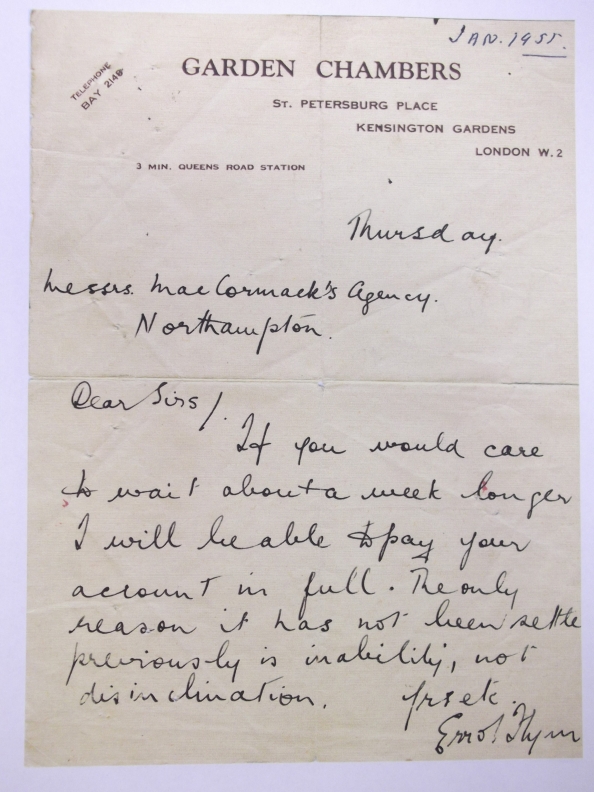 JAN. 1955.
TELEPHONE
BAY 2148
GARDEN CHAMBERS
ST. PETERSBURG PLACE
KENSINGTON GARDENS
LONDON W.2
3 MIN. QUEENS ROAD STATION
Thursday.
Messrs. MacCormack's Agency.
Northampton.
Dear Sirs/.
If you would care
to wait about a week longer
I will be able to pay your
account in full. The only
reason it has not been settle
previously is inability, not
disinclination. Yrs etc.
Errol Flynn